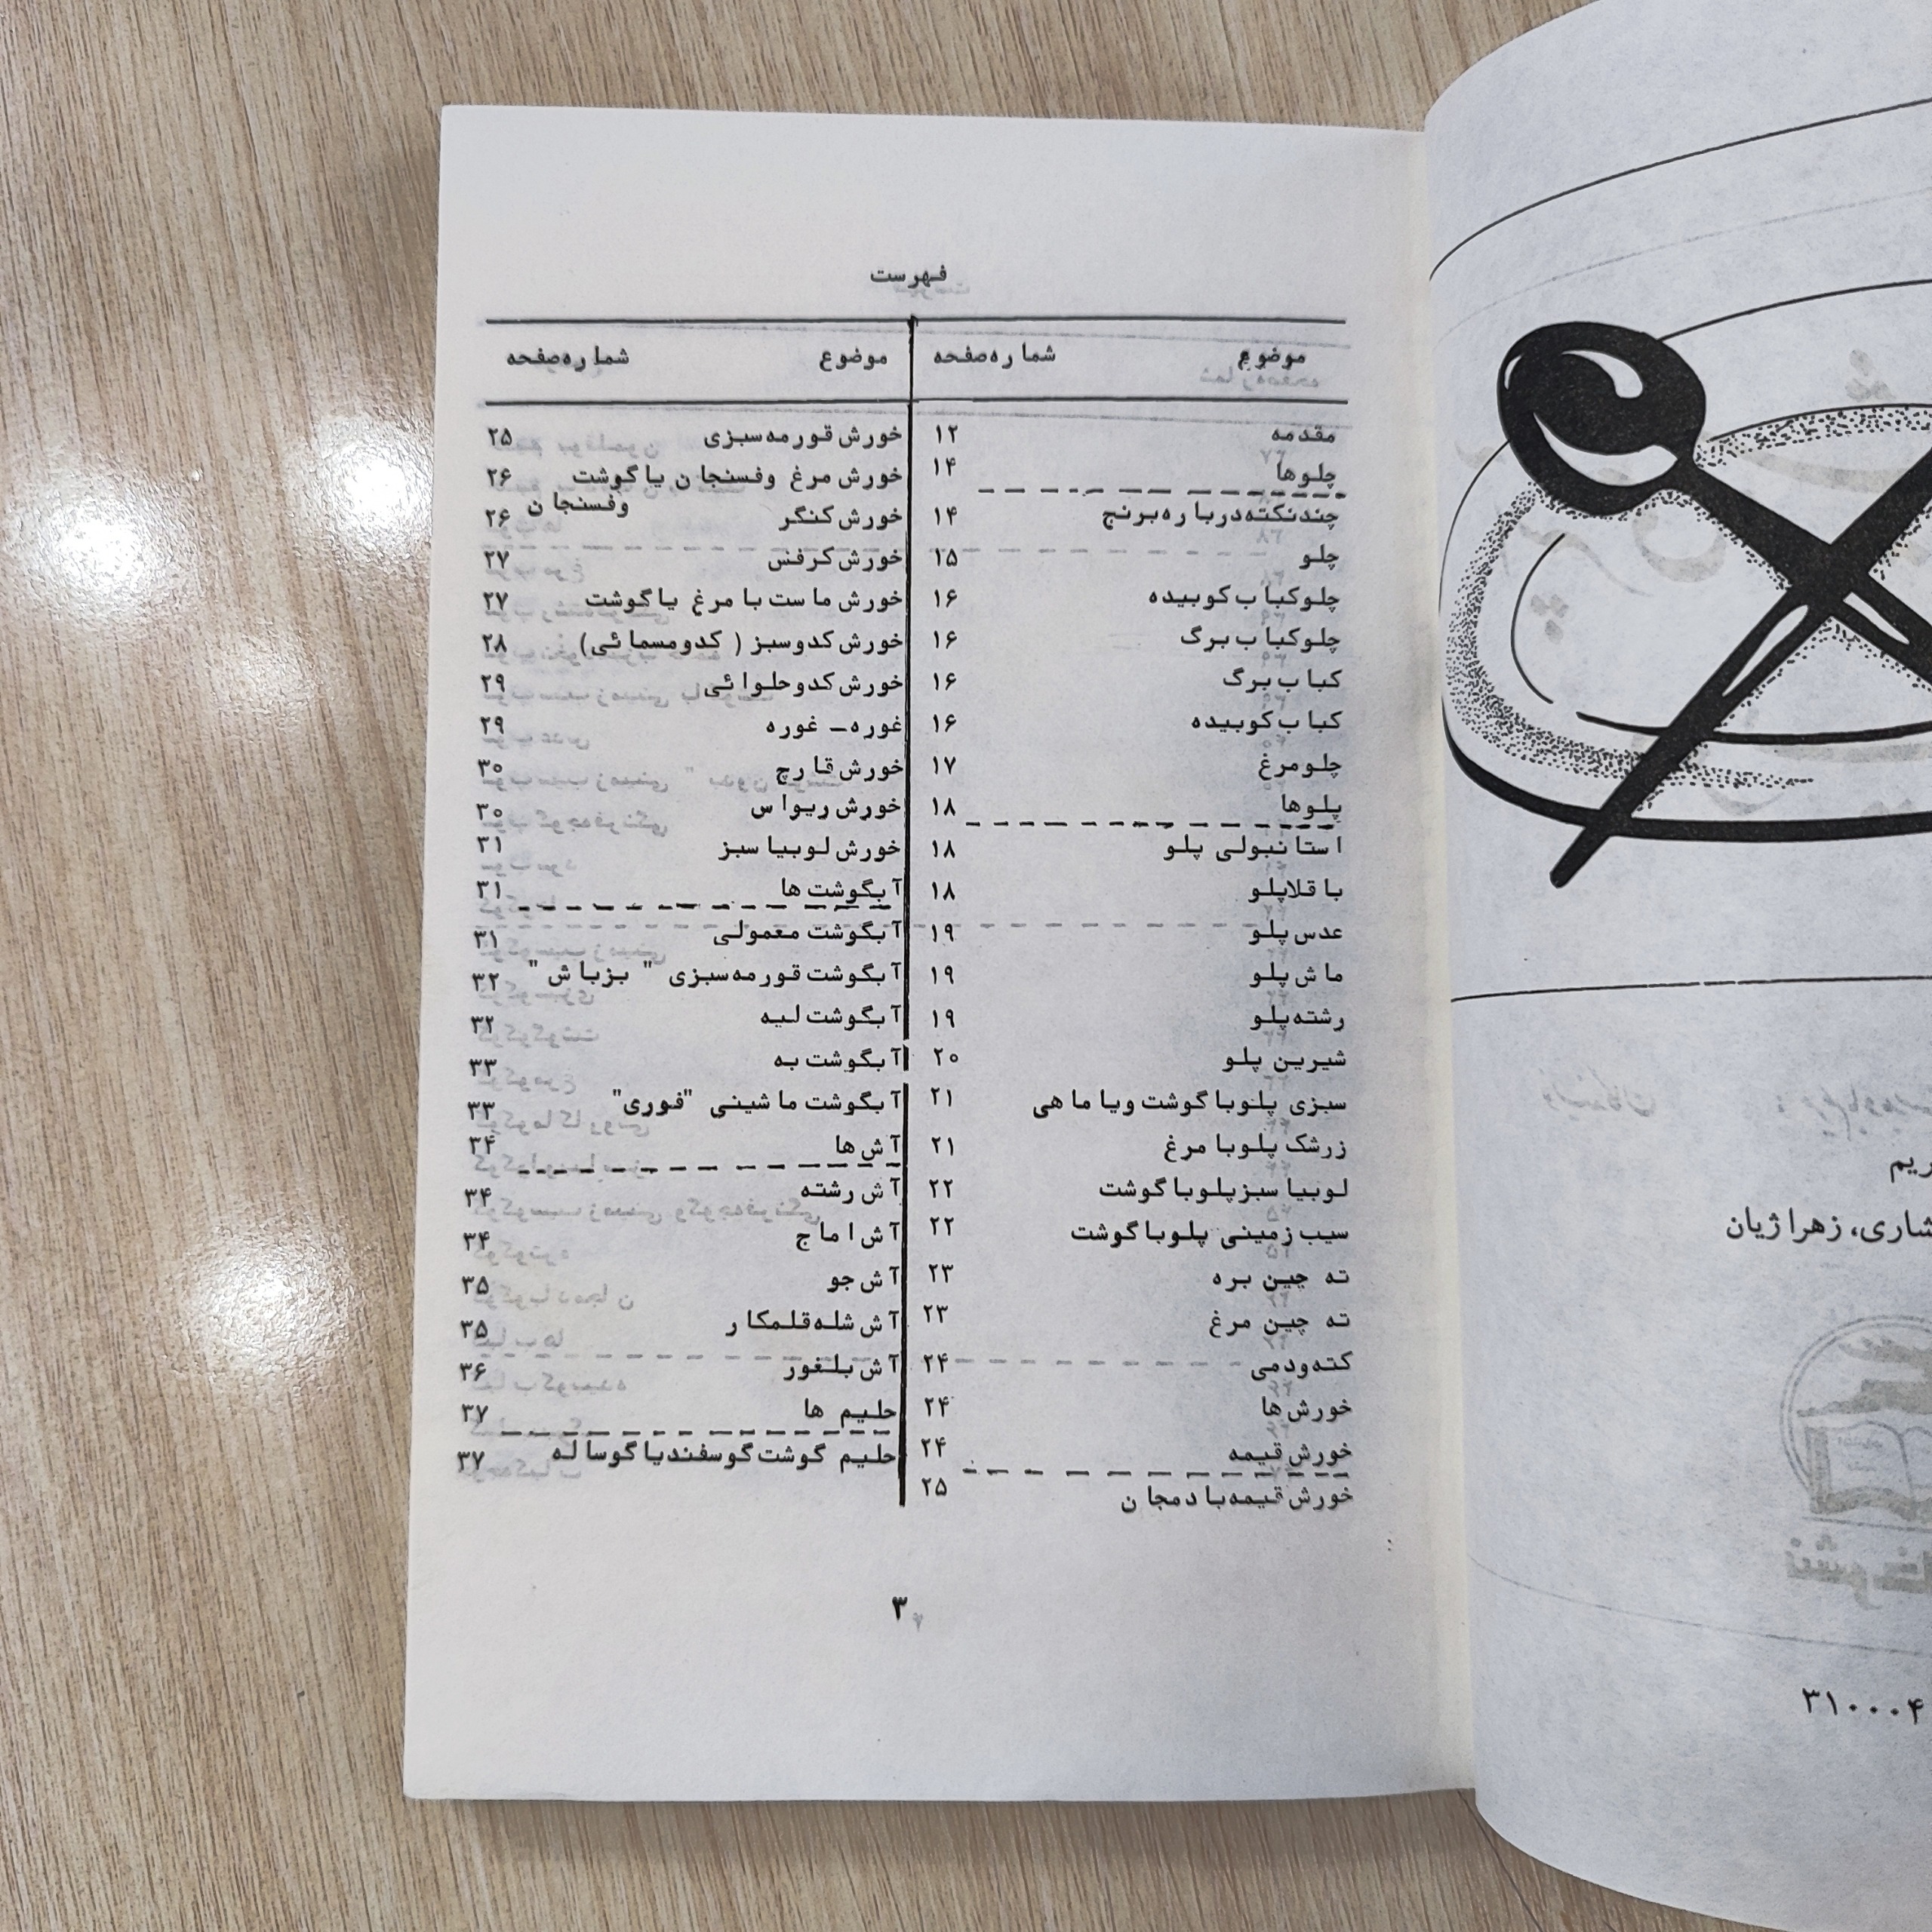 فهرست
موضوع شماره‌صفحه
مقدمه ۱۲
چلوها ۱۴
چندنکته‌درباره‌برنج ۱۴
چلو ۱۵
چلوکباب‌کوبیده ۱۶
چلوکباب‌برگ ۱۶
کباب‌برگ ۱۶
کباب‌کوبیده ۱۶
چلومرغ ۱۷
پلوها ۱۸
استانبولی پلو ۱۸
باقلاپلو ۱۸
عدس‌پلو ۱۹
ماش‌پلو ۱۹
رشته‌پلو ۱۹
شیرین پلو ۲۰
سبزی پلوبا گوشت ویا ماهی ۲۱
زرشک پلوبا مرغ ۲۱
لوبیا سبزپلوبا گوشت ۲۲
سیب‌زمینی پلوبا گوشت ۲۲
ته چین بره ۲۳
ته چین مرغ ۲۳
کته‌ودمی ۲۴
خورش‌ها ۲۴
خورش‌قیمه ۲۴
خورش‌قیمه‌بادمجان ۲۵
موضوع شماره‌صفحه
خورش‌قورمه‌سبزی ۲۵
خورش مرغ وفسنجان یا گوشت وفسنجان ۲۶
خورش‌کنگر ۲۶
خورش‌کرفس ۲۷
خورش ماست با مرغ یا گوشت ۲۷
خورش‌کدوسبز ( کدومسمائی) ۲۸
خورش‌کدوحلوائی ۲۹
غوره‌ــ غوره ۲۹
خورش‌قارچ ۳۰
خورش‌ریواس ۳۰
خورش لوبیا سبز ۳۱
آبگوشت ها ۳۱
آبگوشت معمولی ۳۱
آبگوشت‌قورمه‌سبزی " بزباش " ۳۲
آبگوشت لپه ۳۲
آبگوشت به ۳۳
آبگوشت ماشینی "فوری" ۳۳
آش‌ها ۳۴
آش رشته ۳۴
آش‌اماج ۳۴
آش‌جو ۳۵
آش شله‌قلمکار ۳۵
آش‌بلغور ۳۶
حلیم ها ۳۷
حلیم گوشت‌گوسفندیا گوساله ۳۷
۳
شاری، زهرا ژیان
۳۱۰۰۰۴